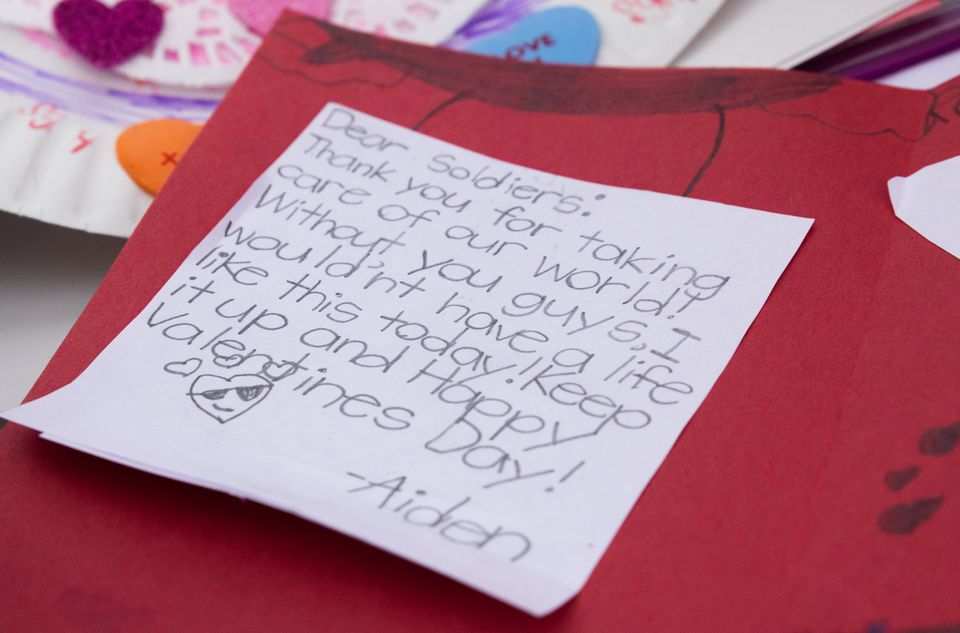 LOVE
Dear Soldiers:
Thank you for taking
care of our world!
Without you guys, I
would'nt have a life
like this today! Keep
it up and Happy
Valentines Day!
-Aiden